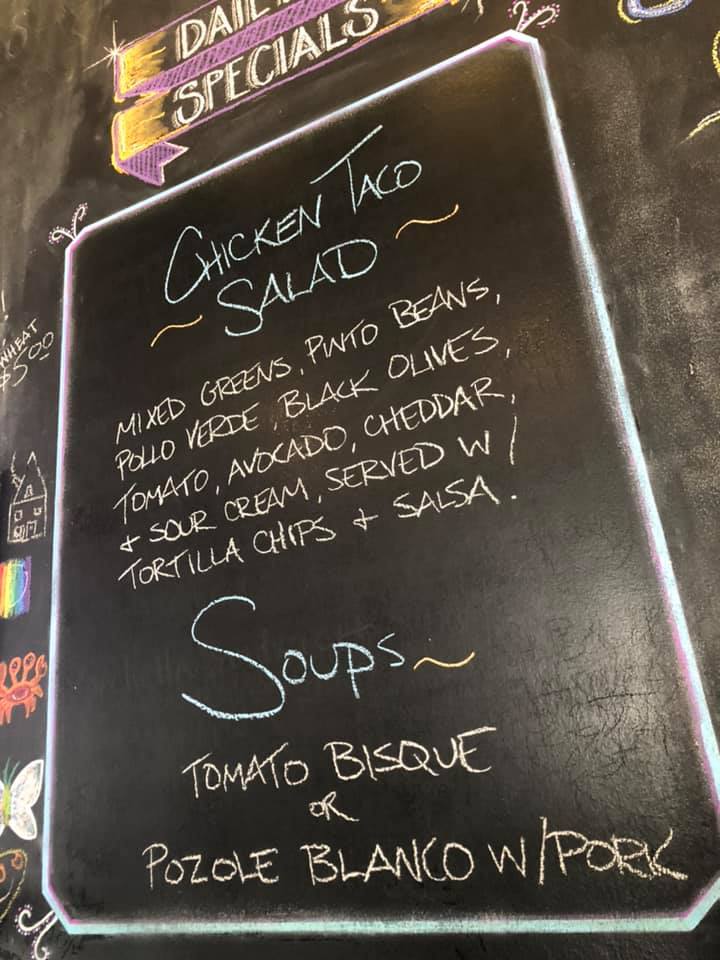 DAILY
SPECIALS
CHICKEN TACO
~ SALAD ~
MIXED GREENS, PINTO BEANS,
POLLO VERDE, BLACK OLIVES,
TOMATO, AVOCADO, CHEDDAR,
+ SOUR CREAM, SERVED W/
TORTILLA CHIPS + SALSA.
SOUPS~
TOMATO BISQUE
OR
POZOLE BLANCO W/PORK
WHEAT
$5.00